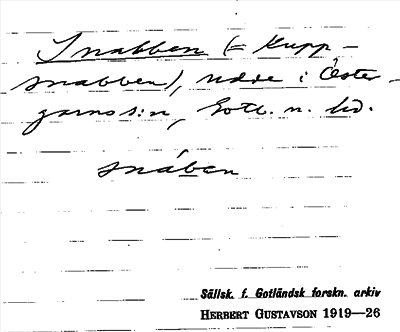 Snabben (= Kupp-
snabben), udde i Öster-
garns s:n, Gotl. n. hd.
snában
Sällsk. f. Gotländsk forskn. arkiv
HERBERT GUSTAVSON 1919—26